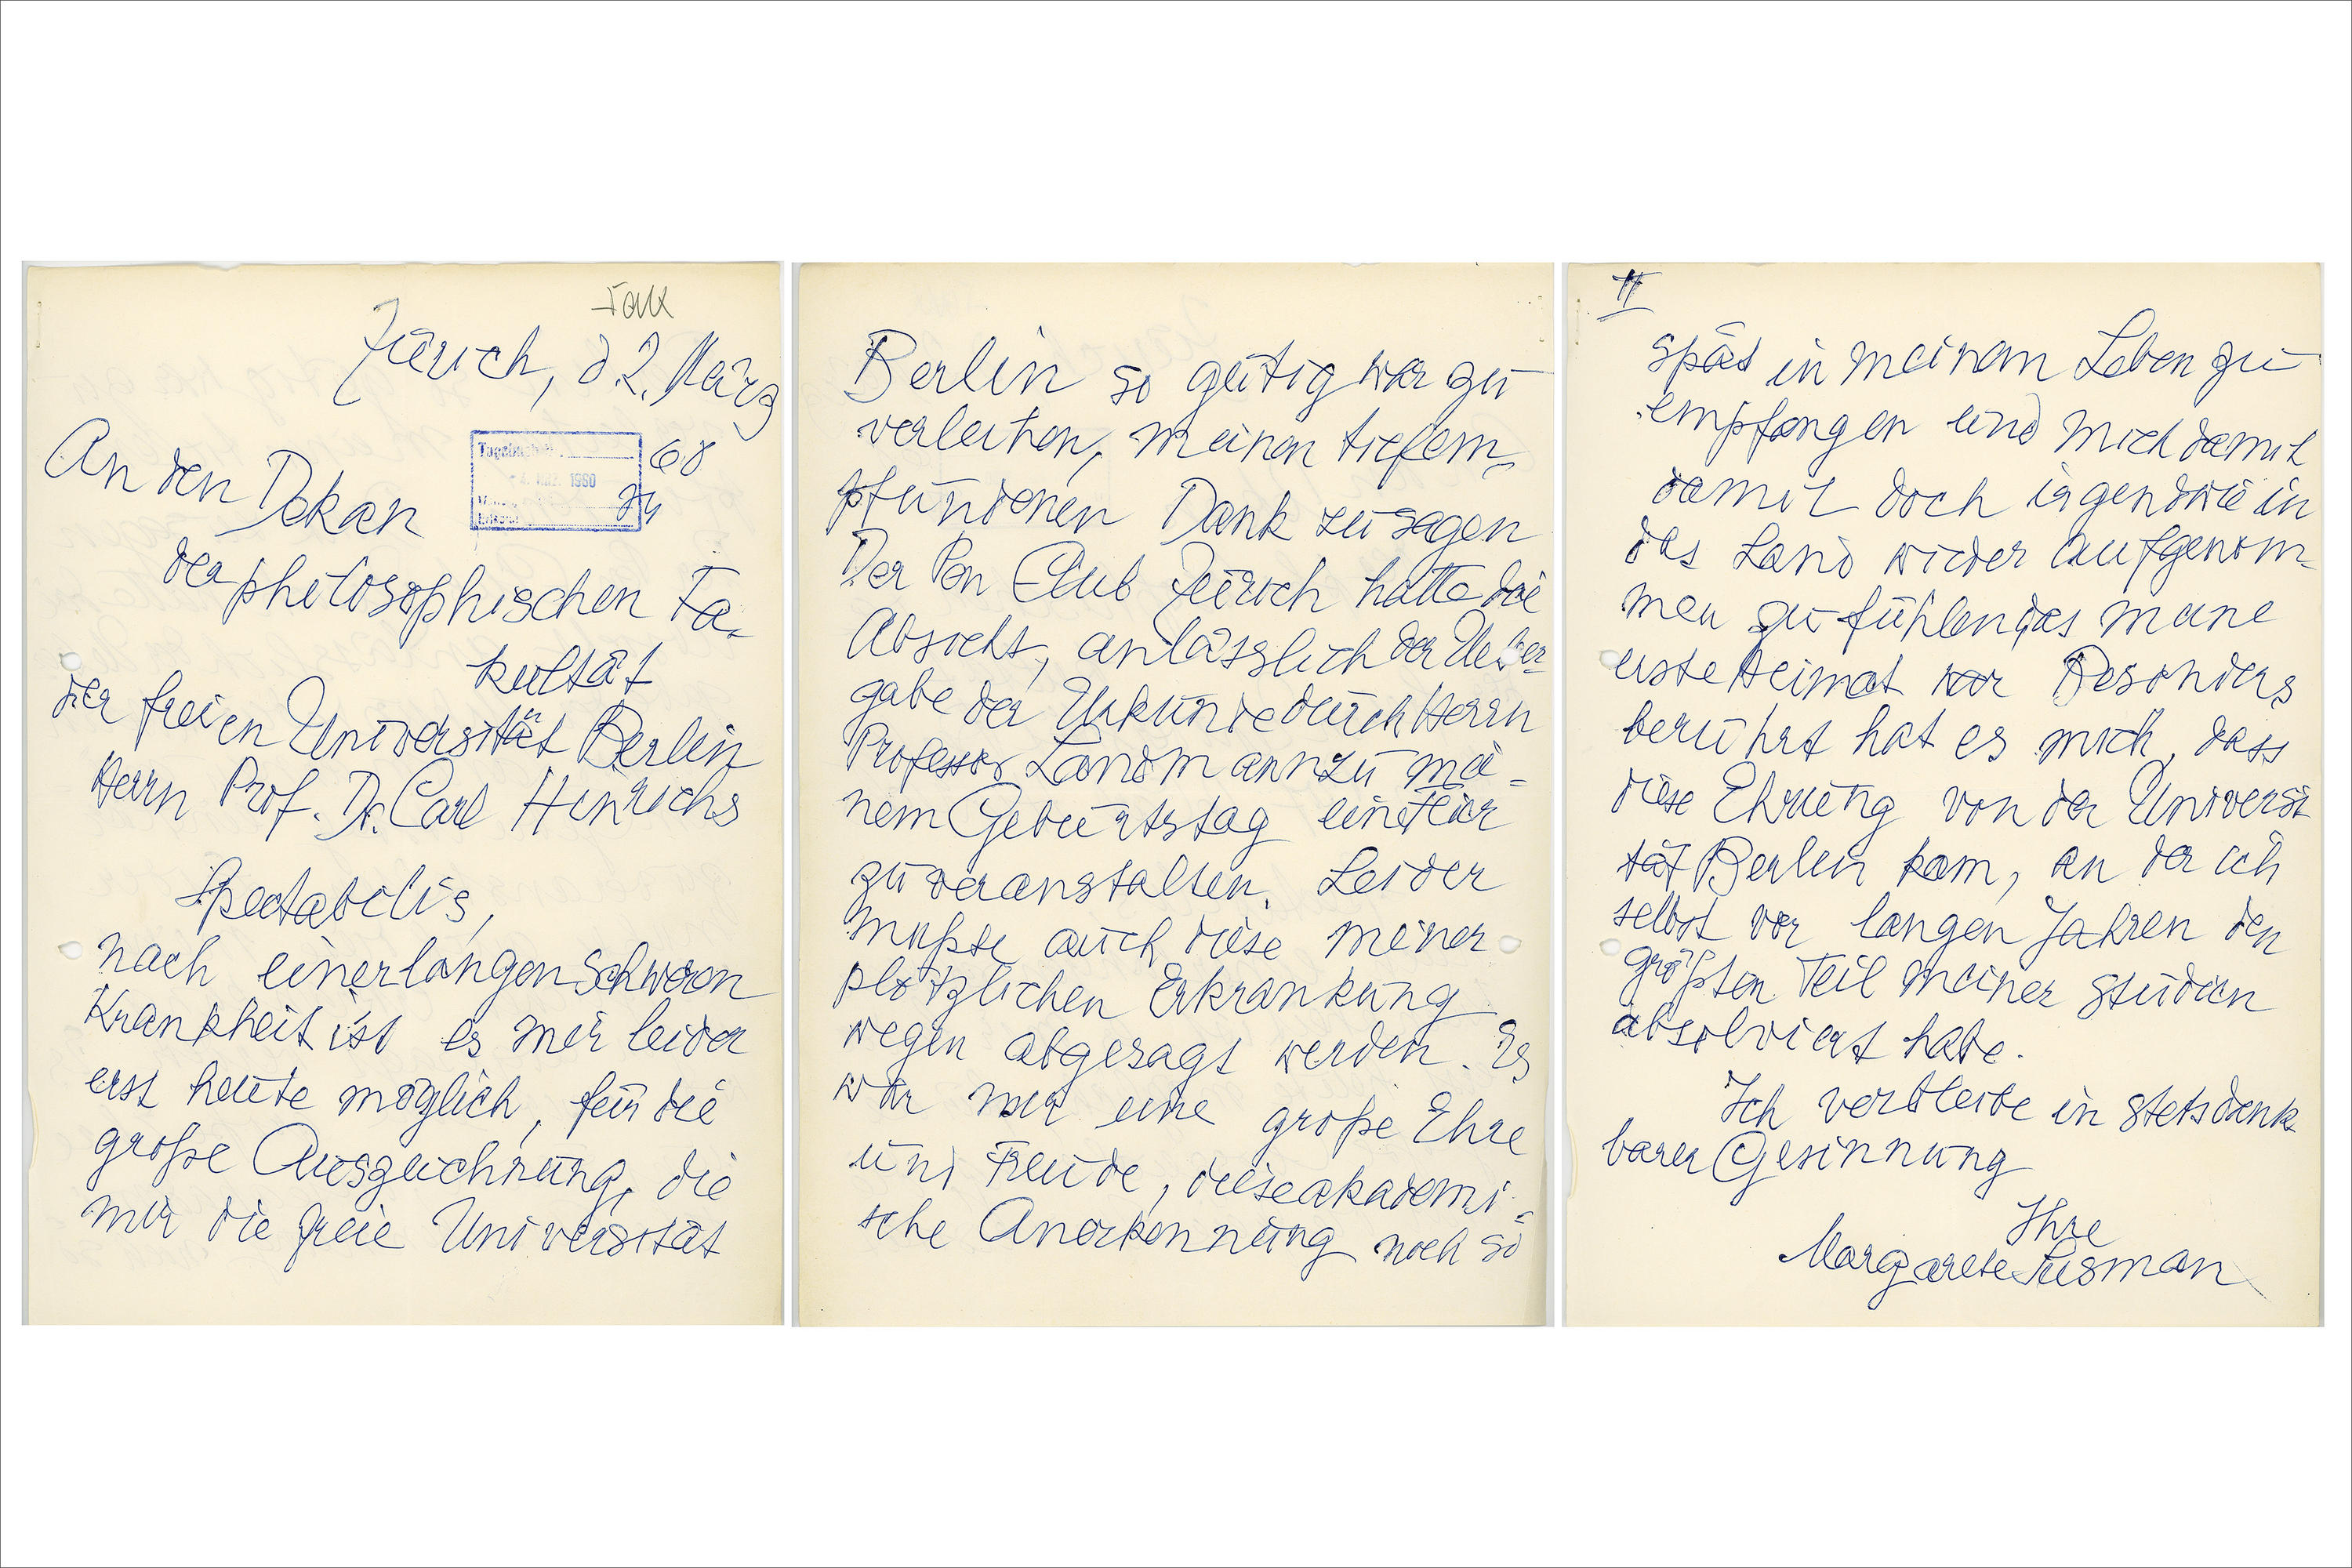 Zürich, d 2. März
60
An den Dekan
der philosophischen Fa-
kultät
der freien Universität Berlin
Herrn Prof. Dr. Carl Hinrichs
Spectabilis,
nach einer langen schweren
Krankheit ist es mir leider
erst heute möglich, für die
große Auszeichnung, die
mir die freie Universität
Berlin so gütig war zu
verleihen, meinen tiefem-
pfundenen Dank zu sagen
Der Pen Club Zürich hatte die
Absicht, anlässlich der Ueber-
gabe der Urkunde durch Herrn
Professor Landmann zu mei-
nem Geburtstag eine Feier
zu veranstalten. Leider
mußte auch diese meiner
plötzlichen Erkrankung
wegen abgesagt werden. Es
war mir eine große Ehre
und Freude, diese akademi-
sche Anerkennung noch so
II
spät in meinem Leben zu
empfangen und mich damit
damit doch irgendwie in
das Land wieder aufgenom-
men zu fühlen, das meine
erste Heimat war Besonders
berührt hat es mich, dass
diese Ehrung von der Universi
tät Berlin kam, an der ich
selbst vor langen Jahren den
größten Teil meiner Studien
absolviert habe.
Ich verbleibe in stets dank
barer Gesinnung
Ihre
Margarete Susman